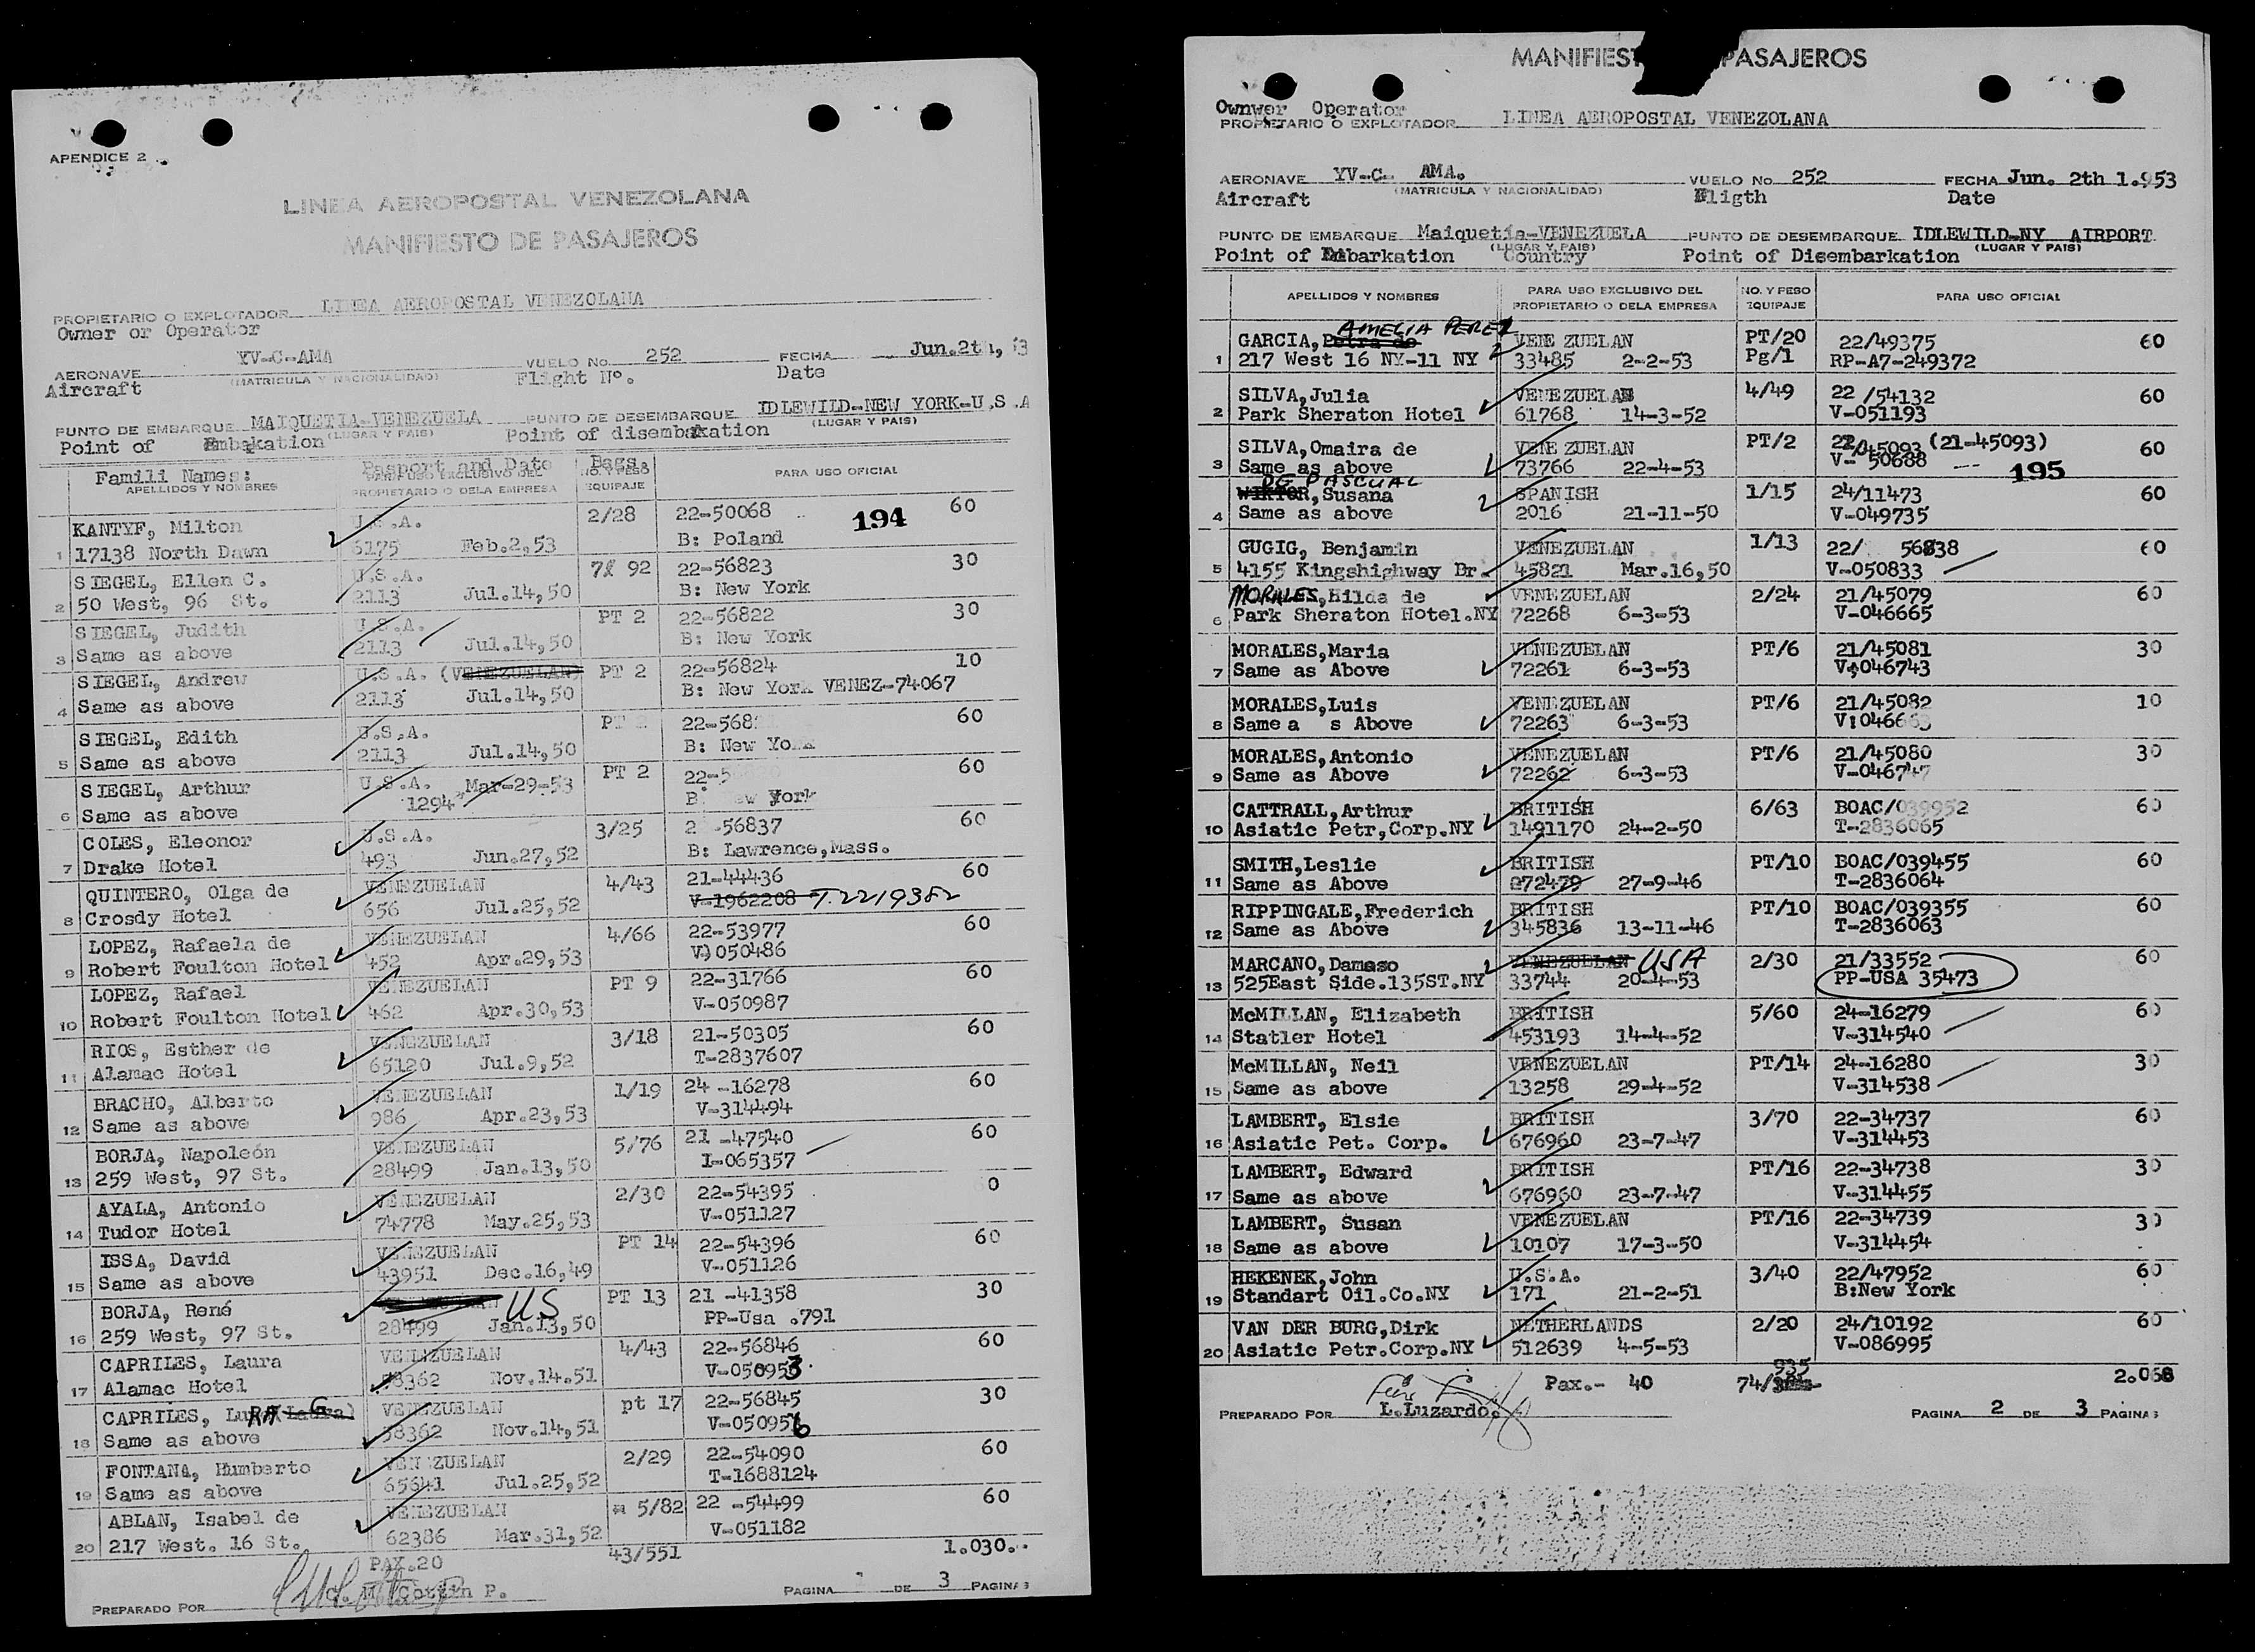 APENDICE 2
LINEA AEROPOSTAL VENEZOLANA
MANIFIESTO DE PASAJEROS
LINEA AEROPOSTAL VENEZOLANA
PROPIETARIO O EXPLOTADOR
Owner or Operator
YV-C-AMA VUELO No 252 FECHA Jun.2th,
AERONAVE (MATRICULA Y NACIONALIDAD) Flight Nº. Date
Aircraft
PUNTO DE EMBARQUE MAIQUETIA-VENEZUELA PUNTO DE DESEMBARQUE IDLEWILD-NEW YORK-U.S.A
(LUGAR Y PAIS) (LUGAR Y PAIS)
Point of Embakation Point of disembakation
Famili Names: Pasport and Date Bags.
APELLIDOS Y NOMBRES PARA USO EXCLUSIVO DEL PROPIETARIO O DELA EMPRESA NO. Y PESO EQUIPAJE PARA USO OFICIAL
KANTYF, Milton U.S.A. 2/28 22-50068 194 60
1 17138 North Dawn 6175 Feb.2,53 B: Poland
SIEGEL, Ellen C. U.S.A. 92 22-56823 30
2 50 West, 96 St. 2113 Jul.14,50 B: New York
SIEGEL, Judith U.S.A. PT 2 22-56822 30
3 Same as above 2113 Jul.14,50 B: New York
SIEGEL, Andrew U.S.A. (VENEZUELAN) PT 2 22-56824 10
4 Same as above 2113 Jul.14,50 B: New York VENEZ-74067
SIEGEL, Edith U.S.A. PT 22-568 60
5 Same as above 2113 Jul.14,50 B: New York
SIEGEL, Arthur U.S.A. Mar-29-53 PT 2 22-5 60
6 Same as above 1294 B: New York
COLES, Eleonor U.S.A. 3/25 2 -56837 60
7 Drake Hotel 493 Jun.27,52 B: Lawrence,Mass.
QUINTERO, Olga de VENEZUELAN 4/43 21-44436 60
8 Crosdy Hotel 656 Jul.25,52 V-1962208 T.2219382
LOPEZ, Rafaela de VENEZUELAN 4/66 22-53977 60
9 Robert Foulton Hotel 452 Apr.29,53 V)050486
LOPEZ, Rafael VENEZUELAN PT 9 22-31766 60
10 Robert Foulton Hotel 462 Apr.30,53 V-050987
RIOS, Esther de VENEZUELAN 3/18 21-50305 60
11 Alamac Hotel 65120 Jul.9,52 T-2837607
BRACHO, Alberto VENEZUELAN 1/19 24 -16278 60
12 Same as above 986 Apr.23,53 V-314494
BORJA, Napoleón VENEZUELAN 5/76 21 -47540 60
13 259 West, 97 St. 28499 Jan.13,50 I-065357
AYALA, Antonio VENEZUELAN 2/30 22-54395 0
14 Tudor Hotel 74778 May.25,53 V-051127
ISSA, David VENEZUELAN PT 14 22-54396 60
15 Same as above 43951 Dec.16,49 V-051126
BORJA, René US PT 13 21 -41358 30
16 259 West, 97 St. 28499 Jan.13,50 PP-Usa .791
CAPRILES, Laura VENEZUELAN 4/43 22-56846 60
17 Alamac Hotel 58362 Nov.14.51 V-050953.
CAPRILES, VENEZUELAN pt 17 22-56845 30
18 Same as above 58362 Nov.14,51 V-050956
FONTANA, Humberto VENEZUELAN 2/29 22-54090 60
19 Same as above 65641 Jul.25,52 T-1688124
ABLAN, Isabel de VENEZUELAN 5/82 22 -54499 60
20 217 West. 16 St. 62386 Mar.31,52 V-051182
PAX.20 43/551 1.030.
Cottin P.
PREPARADO POR PAGINA DE 3 PAGINAS
MANIFIEST PASAJEROS
Ownwer Operator
PROPIETARIO O EXPLOTADOR LINEA AEROPOSTAL VENEZOLANA
AERONAVE YV-C- AMA. VUELO No 252 FECHA Jun. 2th 1.953
(MATRICULA Y NACIONALIDAD)
Aircraft Fligth Date
PUNTO DE EMBARQUE Maiquetia-VENEZUELA PUNTO DE DESEMBARQUE IDLEWILD-NY AIRPORT
(LUGAR Y PAIS) (LUGAR Y PAIS)
Point of Embarkation Country Point of Disembarkation
APELLIDOS Y NOMBRES PARA USO EXCLUSIVO DEL PROPIETARIO O DELA EMPRESA NO. Y PESO EQUIPAJE PARA USO OFICIAL
AMELIA PEREZ
GARCIA, Petra de VENE ZUELAN PT/20 22/49375 60
1 217 West 16 NY-11 NY 33485 2-2-53 Pg/1 RP-A7-249372
SILVA,Julia VENEZUELAN 4/49 22 /54132 60
2 Park Sheraton Hotel 61768 14-3-52 V-051193
SILVA,Omaira de VENE ZUELAN PT/2 22/45093 (21-45093) 60
3 Same as above 73766 22-4-53 V- 50688 195
DE PASCUAL
WIKTOR, Susana SPANISH 1/15 24/11473 60
4 Same as above 2016 21-11-50 V-049735
GUGIG, Benjamin VENEZUELAN 1/13 22/ 56838 60
5 4155 Kingshighway Br. 45821 Mar.16,50 V-050833
MORALES,Hilda de VENEZUELAN 2/24 21/45079 60
6 Park Sheraton Hotel.NY 72268 6-3-53 V-046665
MORALES,Maria VENEZUELAN PT/6 21/45081 30
7 Same as Above 72261 6-3-53 V-046743
MORALES,Luis VENEZUELAN PT/6 21/45082 10
8 Same a s Above 72263 6-3-53
MORALES,Antonio VENEZUELAN PT/6 21/45080 30
9 Same as Above 72262 6-3-53 V-046747
CATTRALL,Arthur BRITISH 6/63 BOAC/039952 60
10 Asiatic Petr,Corp.NY 1491170 24-2-50 T-2836065
SMITH,Leslie BRITISH PT/10 BOAC/039455 60
11 Same as Above 272479 27-9-46 T-2836064
RIPPINGALE,Frederich BRITISH PT/10 BOAC/039355 60
12 Same as Above 345836 13-11-46 T-2836063
MARCANO,Damaso VENEZUELAN USA 2/30 21/33552 60
13 525East Side.135ST.NY 33744 20-4-53 PP-USA 35473
McMILLAN, Elizabeth BRITISH 5/60 24-16279 60
14 Statler Hotel 453193 14-4-52 V-314540
McMILLAN, Neil VENEZUELAN PT/14 24-16280 30
15 Same as above 13258 29-4-52 V-314538
LAMBERT, Elsie BRITISH 3/70 22-34737 60
16 Asiatic Pet. Corp. 676960 23-7-47 V-314453
LAMBERT, Edward BRITISH PT/16 22-34738 30
17 Same as above 676960 23-7-47 V-314455
LAMBERT, Susan VENEZUELAN PT/16 22-34739 30
18 Same as above 10107 17-3-50 V-314454
HEKENEK,John U.S.A. 3/40 22/47952 60
19 Standart Oil.Co.NY 171 21-2-51 B:New York
VAN DER BURG,Dirk NETHERLANDS 2/20 24/10192 60
20 Asiatic Petr.Corp.NY 512639 4-5-53 V-086995
Pax.- 40 74/ 935 2.068
PREPARADO POR L.Luzardo. PAGINA 2 DE 3 PAGINAS